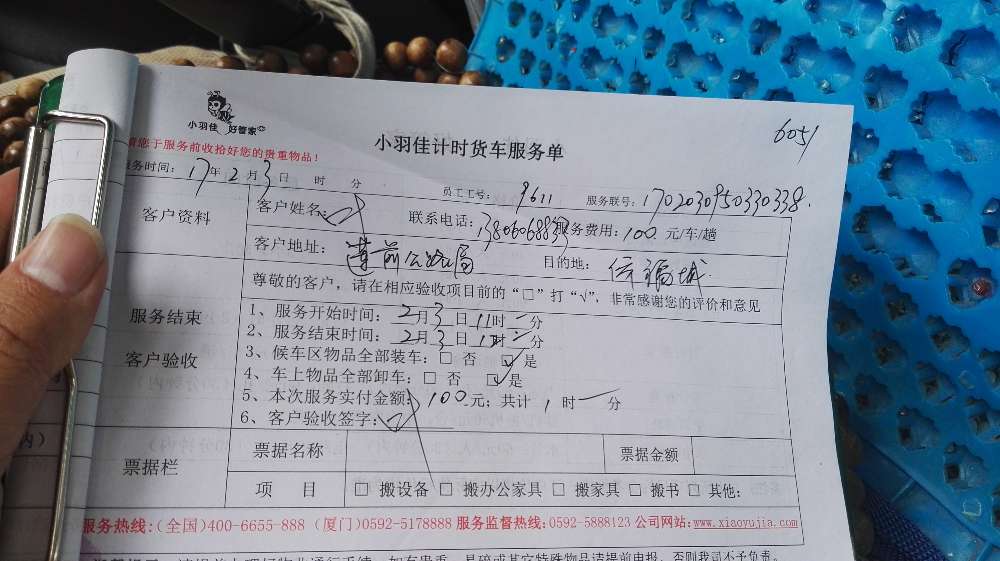 小羽佳 好管家
小羽佳计时货车服务单
6051
请您于服务前收拾好您的贵重物品！
服务时间：17年2月3日 时 分
员工工号：9611 服务联号：1702030950330338.
客户资料
客户姓名： 联系电话：13806068833 服务费用：100 元/车/趟
客户地址：莲前公路局 目的地：
尊敬的客户，请在相应验收项目前的“□”打“√”，非常感谢您的评价和意见
服务结束
客户验收
1、服务开始时间：2月3日11时一分
2、服务结束时间：2月3日 时一分
3、候车区物品全部装车：□ 否 ☑是
4、车上物品全部卸车：□ 否 ☑是
5、本次服务实付金额：100元；共计 1 时一分
6、客户验收签字：
票据栏
票据名称 票据金额
项 目 □ 搬设备 □ 搬办公家具 □ 搬家具 □ 搬书 □ 其他：
服务热线:(全国)400-6655-888 (厦门)0592-5178888 服务监督热线:0592-5888123 公司网站:www.xiaoyujia.com